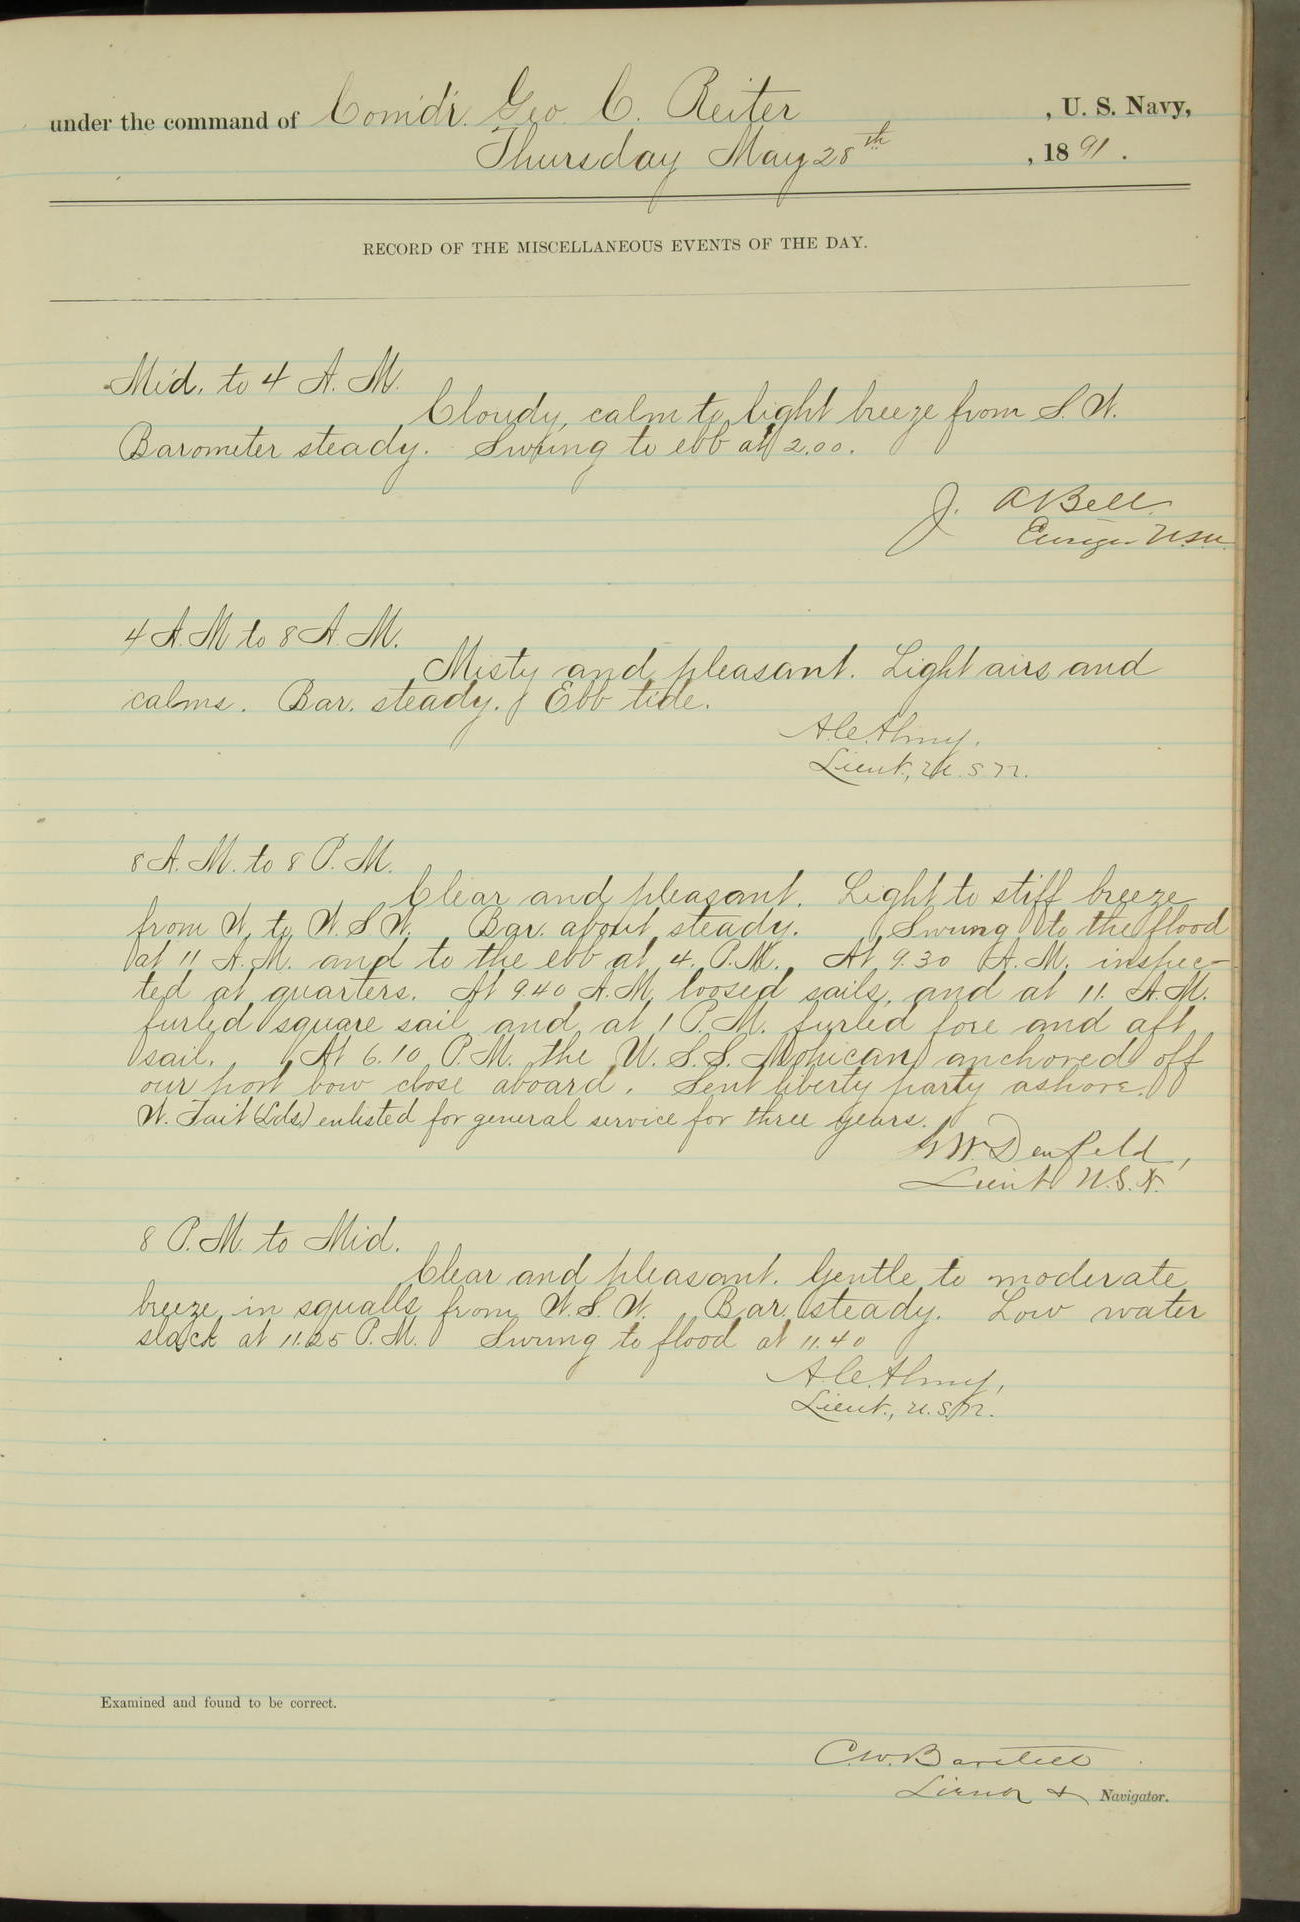 under the command of Com'd'r. Geo. C. Reiter , U. S. Navy,
Thursday May 28th , 1891.
RECORD OF THE MISCELLANEOUS EVENTS OF THE DAY.
Mid. to 4 A. M.
Cloudy, calm to light breeze from S. W.
Barometer steady. Swung to ebb at 2.00.
J. A Bell.
Ensign U.S.N.
4 A. M to 8 A. M.
Misty and pleasant. Light airs and
calms. Bar. steady. Ebb tide.
A.C. Almy.
Lieut., U.S.N.
8 A. M. to 8 P. M.
Clear and pleasant. Light to stiff breeze
from W. to W. S. W. Bar. about steady. Swung to the flood
at 11 A. M. and to the ebb at 4. P. M. At 9.30 A. M. inspec-
ted at quarters. At 9.40 A. M. loosed sails, and at 11. A. M.
furled square sail and at 1 P. M. furled fore and aft
sail. At 6.10 P. M. the U. S. S. Mohican anchored off
our port bow close aboard. Sent liberty party ashore.
W. Tait (Lds.) enlisted for general service for three years.
G W Denfeld,
Lieut U.S.N.
8 P. M. to Mid.
Clear and pleasant. Gentle to moderate
breeze in squalls from W. S. W. Bar. steady. Low water
slack at 11.25 P. M. Swung to flood at 11.40
A.C. Almy,
Lieut., U.S.N.
Examined and found to be correct.
C.W. Bartlett
Lieut & Navigator.